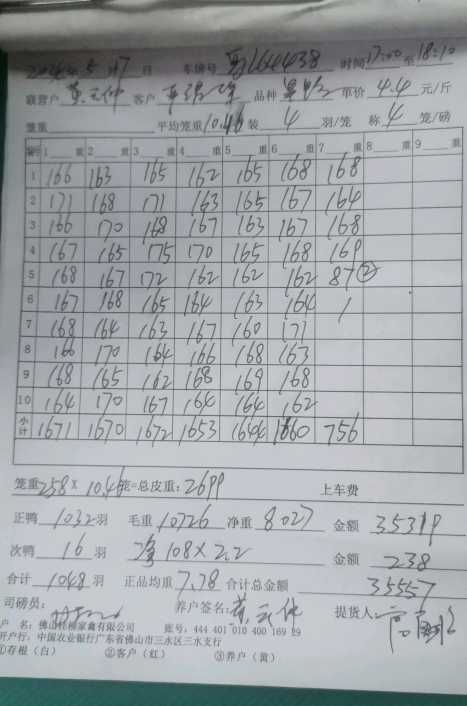 2024年5月17日 车牌号 粤J64438 时间17:00至18:10
联营户 黄云仲 客户 品种 单价 4.4 元/斤
笼重 平均笼重10.46 装 4 羽/笼 称 4 笼/磅
编号 1 重 2 重 3 重 4 重 5 重 6 重 7 重 8 重 9 重
1 166 163 165 162 165 168 168
2 171 168 171 163 165 167 164
3 166 170 168 167 163 167 168
4 167 165 175 170 165 168 169
5 168 167 172 162 162 162 87②
6 167 168 165 164 163 164 /
7 168 164 163 167 160 171
8 166 170 164 166 168 163
9 168 165 162 168 169 168
10 164 170 167 164 164 162
小计 1671 1670 1672 1653 1644 1660 756
笼重258×10.46笼=总皮重:2699 上车费
正鸭 1032羽 毛重 10726 净重 8027 金额 35319
次鸭 16 羽 净108×2.2 金额 238
合计 1048 羽 正品均重 7.78 合计总金额 35557
司磅员: 养户签名: 黄云仲 提货人:
户 名: 佛山 家禽有限公司 账号: 444 401 010 400 169 89
开户行: 中国农业银行广东省佛山市三水区三水支行
①存根(白) ②客户(红) ③养户(黄)